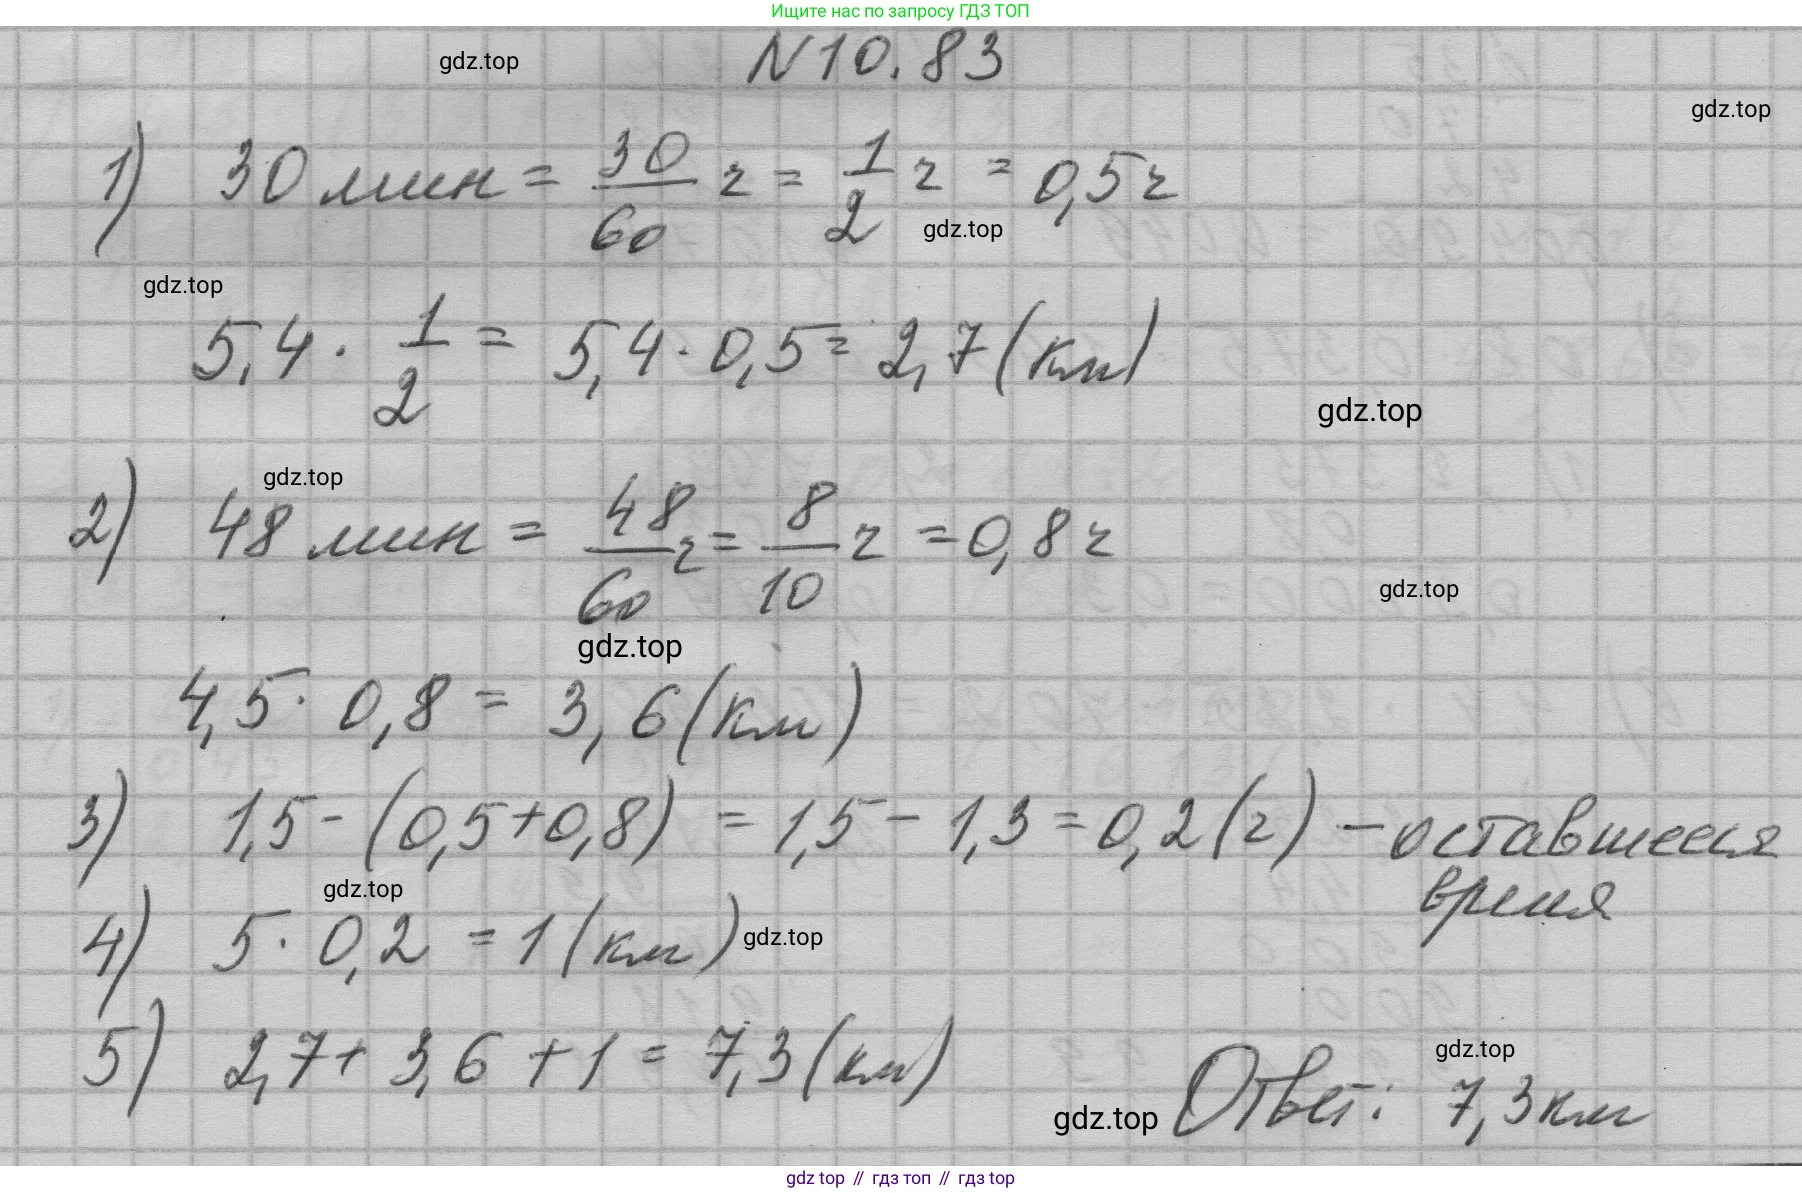 Ищите нас по запросу ГДЗ ТОП
gdz.top N10.83
gdz.top
1) 30 мин = 30/60 ч = 1/2 ч = 0,5 ч
gdz.top
gdz.top
5,4 · 1/2 = 5,4 · 0,5 = 2,7 (км)
gdz.top
gdz.top
2) 48 мин = 48/60 ч = 8/10 ч = 0,8 ч
gdz.top
gdz.top
4,5 · 0,8 = 3,6 (км)
3) 1,5 - (0,5 + 0,8) = 1,5 - 1,3 = 0,2 (ч) - оставшееся
время
gdz.top
4) 5 · 0,2 = 1 (км) gdz.top
5) 2,7 + 3,6 + 1 = 7,3 (км)
gdz.top
gdz.top Ответ: 7,3 км
gdz top // гдз топ // gdz top